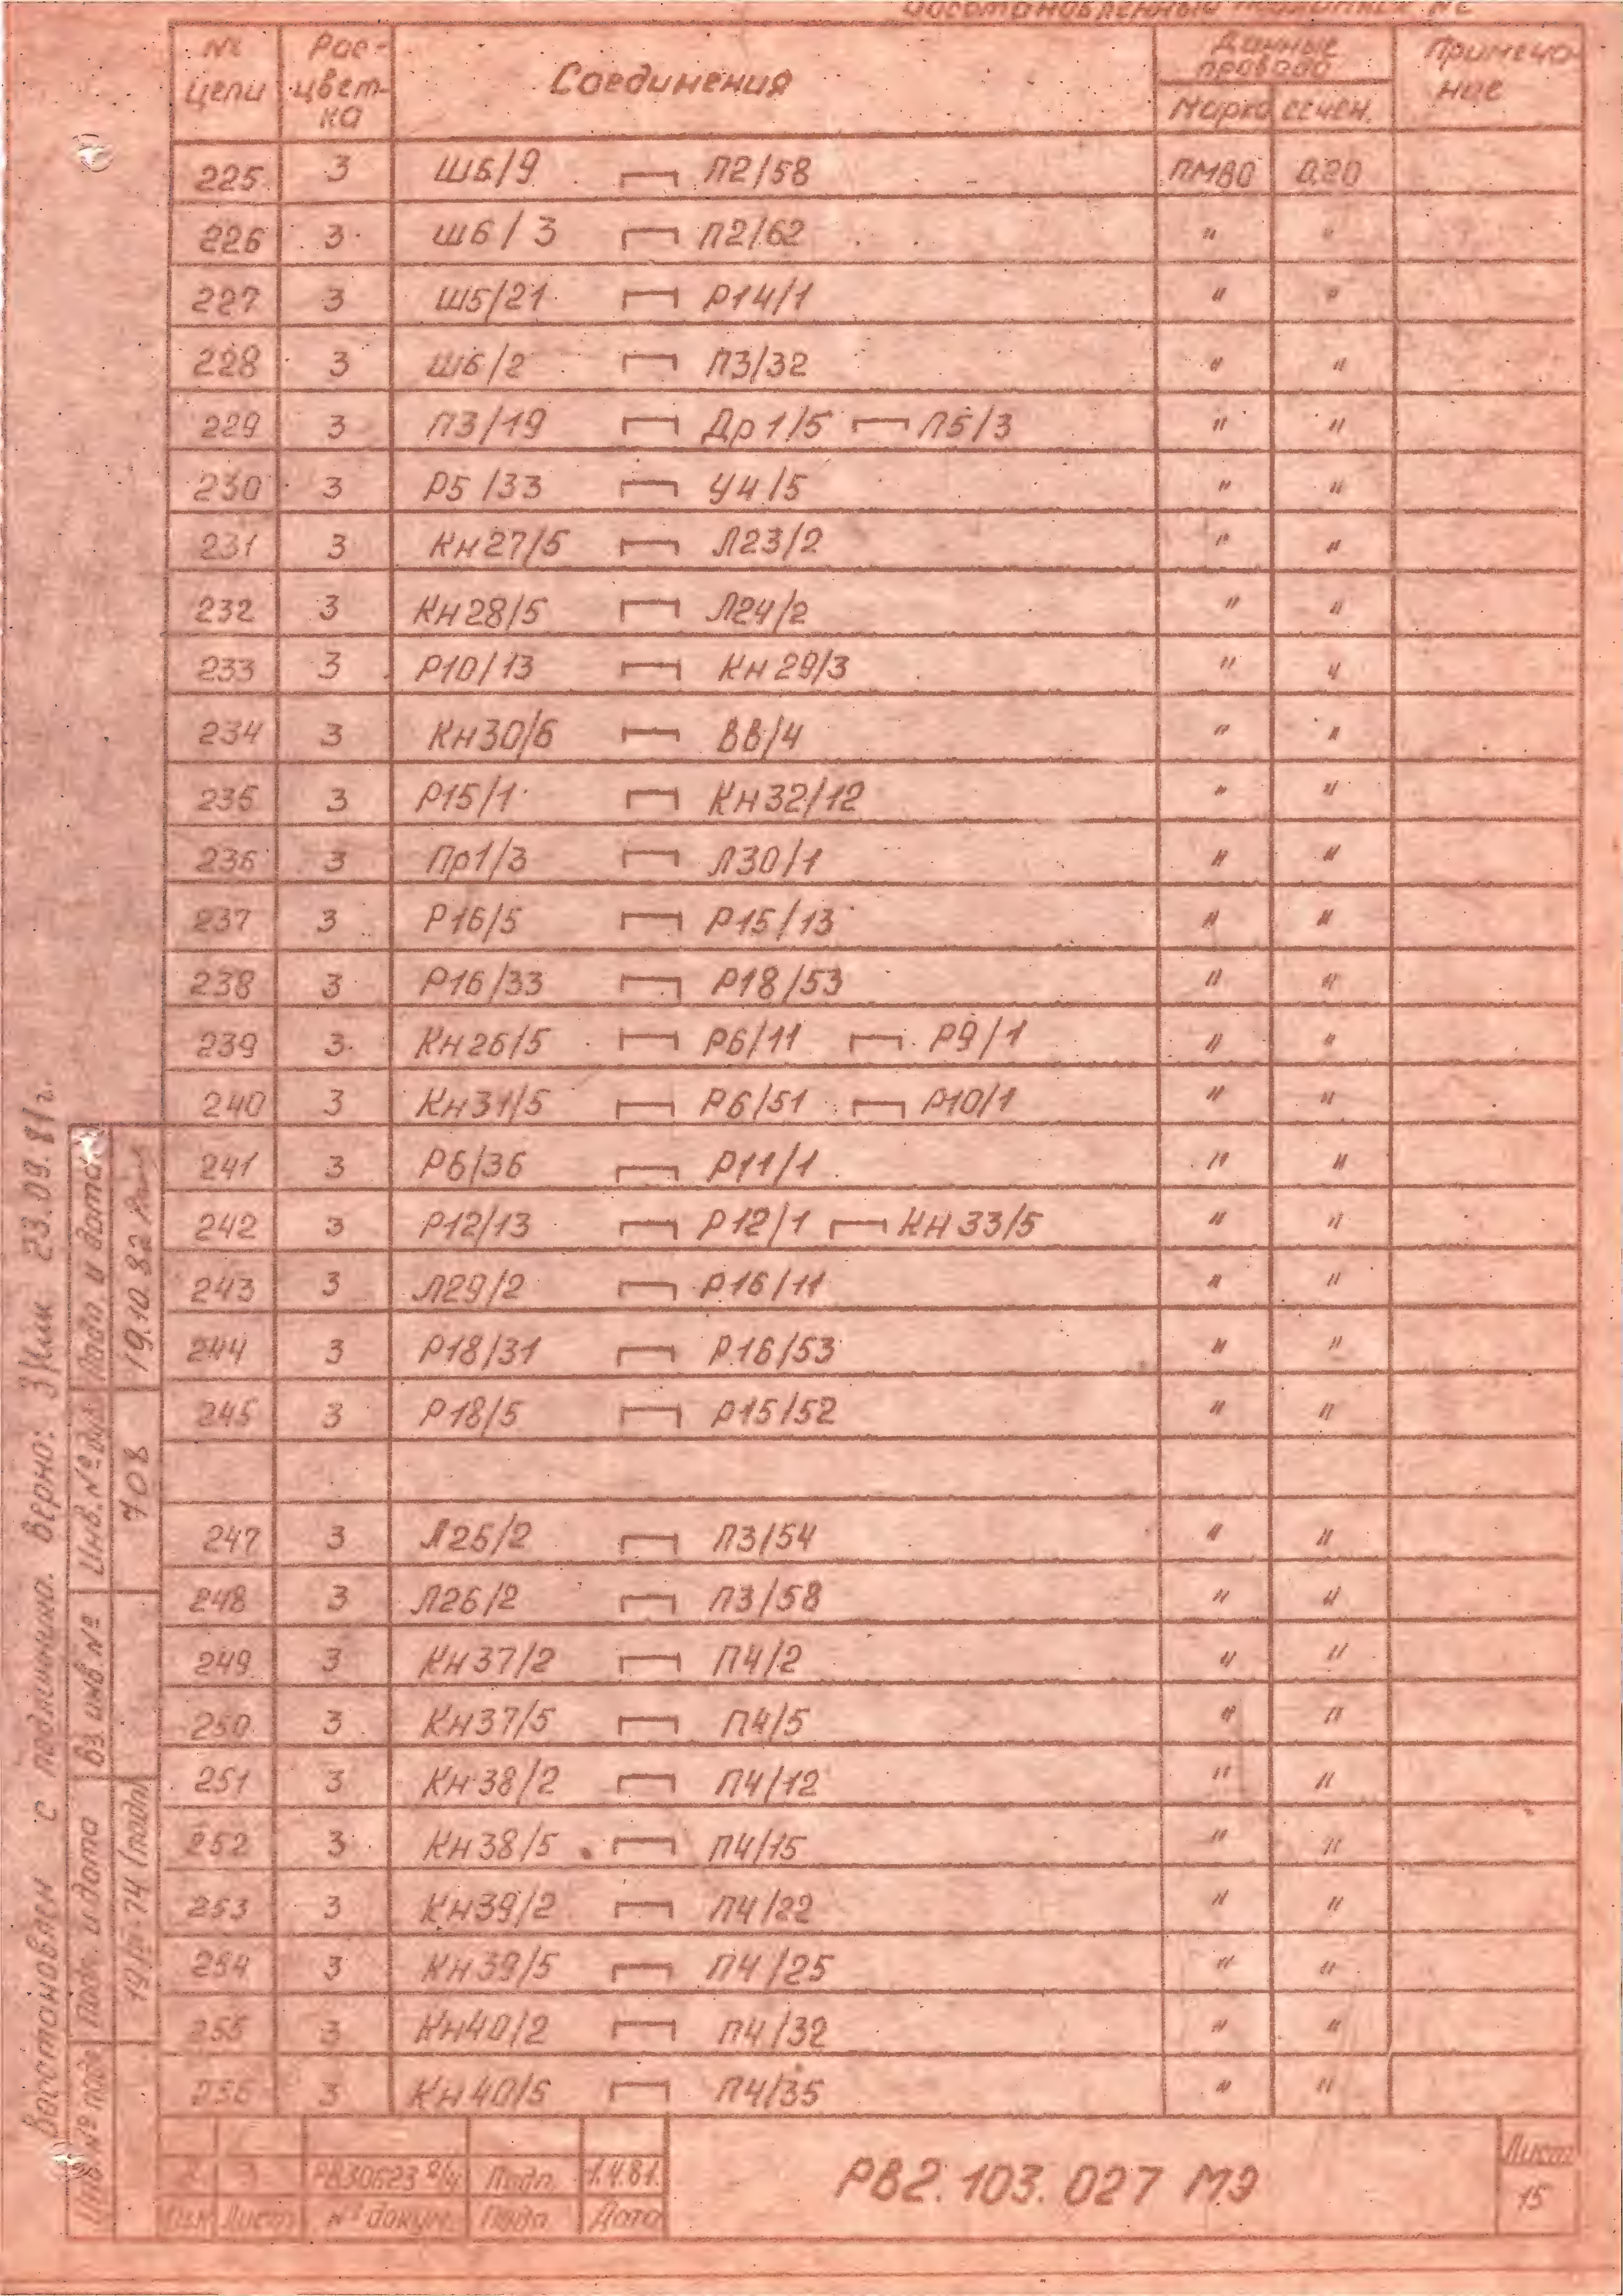 Восстановленный подлинник №2
№ цепи Рас-цветка Соединения Данные провода Марка сечен. Примечание
225 3 Ш5/9 П2/58 ПМВО 0.20
226 3 Ш6/3 П2/62 " "
227 3 Ш5/21 Р14/1 " "
228 3 Ш6/2 П3/32 " "
229 3 П3/19 Др1/5 П5/3 " "
230 3 Р5/33 У4/5 " "
231 3 Кн27/5 Л23/2 " "
232 3 Кн28/5 Л24/2 " "
233 3 Р10/13 Кн29/3 " "
234 3 Кн30/6 В8/4 " "
235 3 Р15/1 Кн32/12 " "
236 3 Пр1/3 Л30/1 " "
237 3 Р16/5 Р15/13 " "
238 3 Р16/33 Р18/53 " "
239 3 Кн26/5 Р6/11 Р9/1 " "
240 3 Кн31/5 Р6/51 Р10/1 " "
241 3 Р6/36 Р11/1 " "
242 3 Р12/13 Р12/1 Кн33/5 " "
243 3 Л29/2 Р16/11 " "
244 3 Р18/31 Р16/53 " "
245 3 Р18/5 Р15/52 " "
247 3 Л25/2 П3/54 " "
248 3 Л26/2 П3/58 " "
249 3 Кн37/2 П4/2 " "
250 3 Кн37/5 П4/5 " "
251 3 Кн38/2 П4/12 " "
252 3 Кн38/5 П4/15 " "
253 3 Кн39/2 П4/22 " "
254 3 Кн39/5 П4/25 " "
255 3 Кн40/2 П4/32 " "
256 3 Кн40/5 П4/35 " "
Восстановлен с подлинника. Верно: 23.09.81г.
Инв.№ подл Подп. и дата Вз. инв № Инв.№ дубл Подп. и дата
19/IV-74 (подп) 708 19.10.82
2 3 РВ30623 Подп. 1.4.81.
Изм Лист № докум. Подп. Дата
РВ2.103.027 МЭ
Лист
15